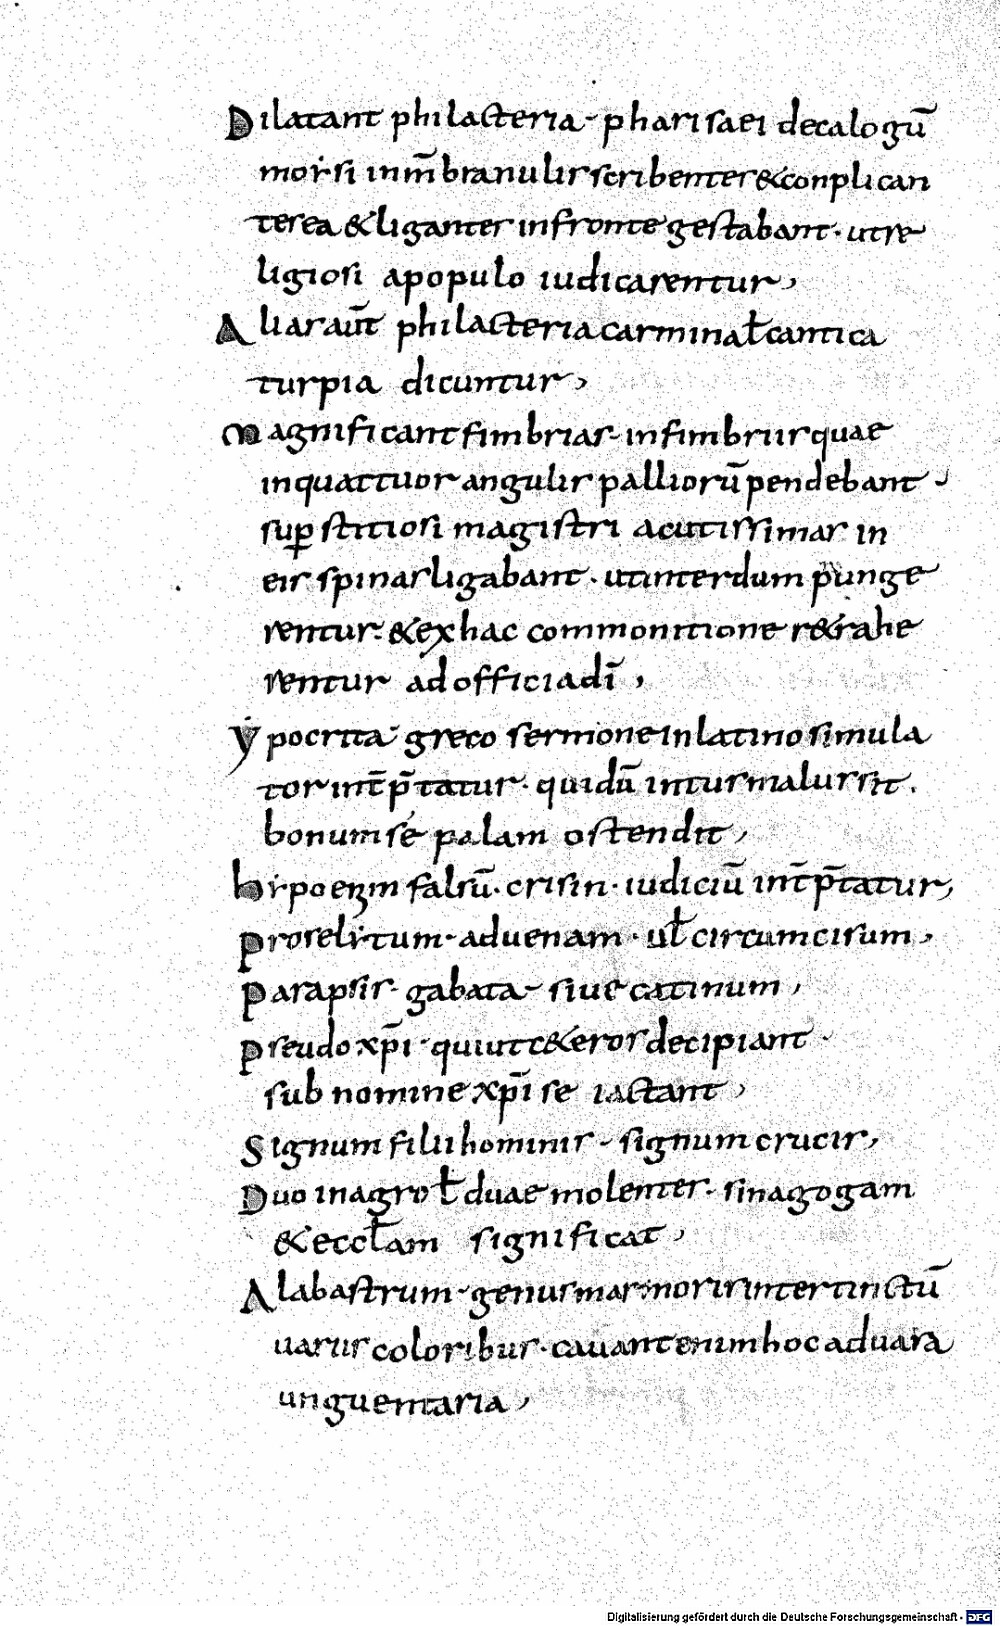 Dilatant philacteria · pharisaei decalogū
moẏsi inm̄branulis scribentes & conplican
tes ea & ligantes infronte gestabant · utre
ligiosi apopulo iudicarentur,
Alias aūt philacteria carmina ł cantica
turpia dicuntur,
Magnificant fimbrias · infimbriis quae
inquattuor angulis palliorū pendebant ,
suꝑstitiosi magistri acutissimas in
eis spinas ligabant · utinterdum punge
rentur · & ex hac commonitione r&rahe
rentur ad officia dī ,
Ẏpocrita · greco sermone inlatino simula
tor int̄p̄tatur · quidū intus malus sit .
bonum sé palam ostendit ,
Hẏpoezin falsū · crisin · iudiciū int̄p̄tatur ,
Proselẏtum · aduenam · uł circumcisum ,
Parapsis · gabata · siue catinum ,
Pseudo xp̄i · qui ut c&eros decipiant ·
sub nomine xp̄i se iactant ,
Signum filii hominis · signum crucis ,
Duo inagro ł duae molentes · sinagogam
& eccłam significat ,
Alabastrum · genus marmoris intertinctū
uariis coloribus · cauant enim hoc aduasa
unguentaria ,
Digitalisierung gefördert durch die Deutsche Forschungsgemeinschaft - DFG